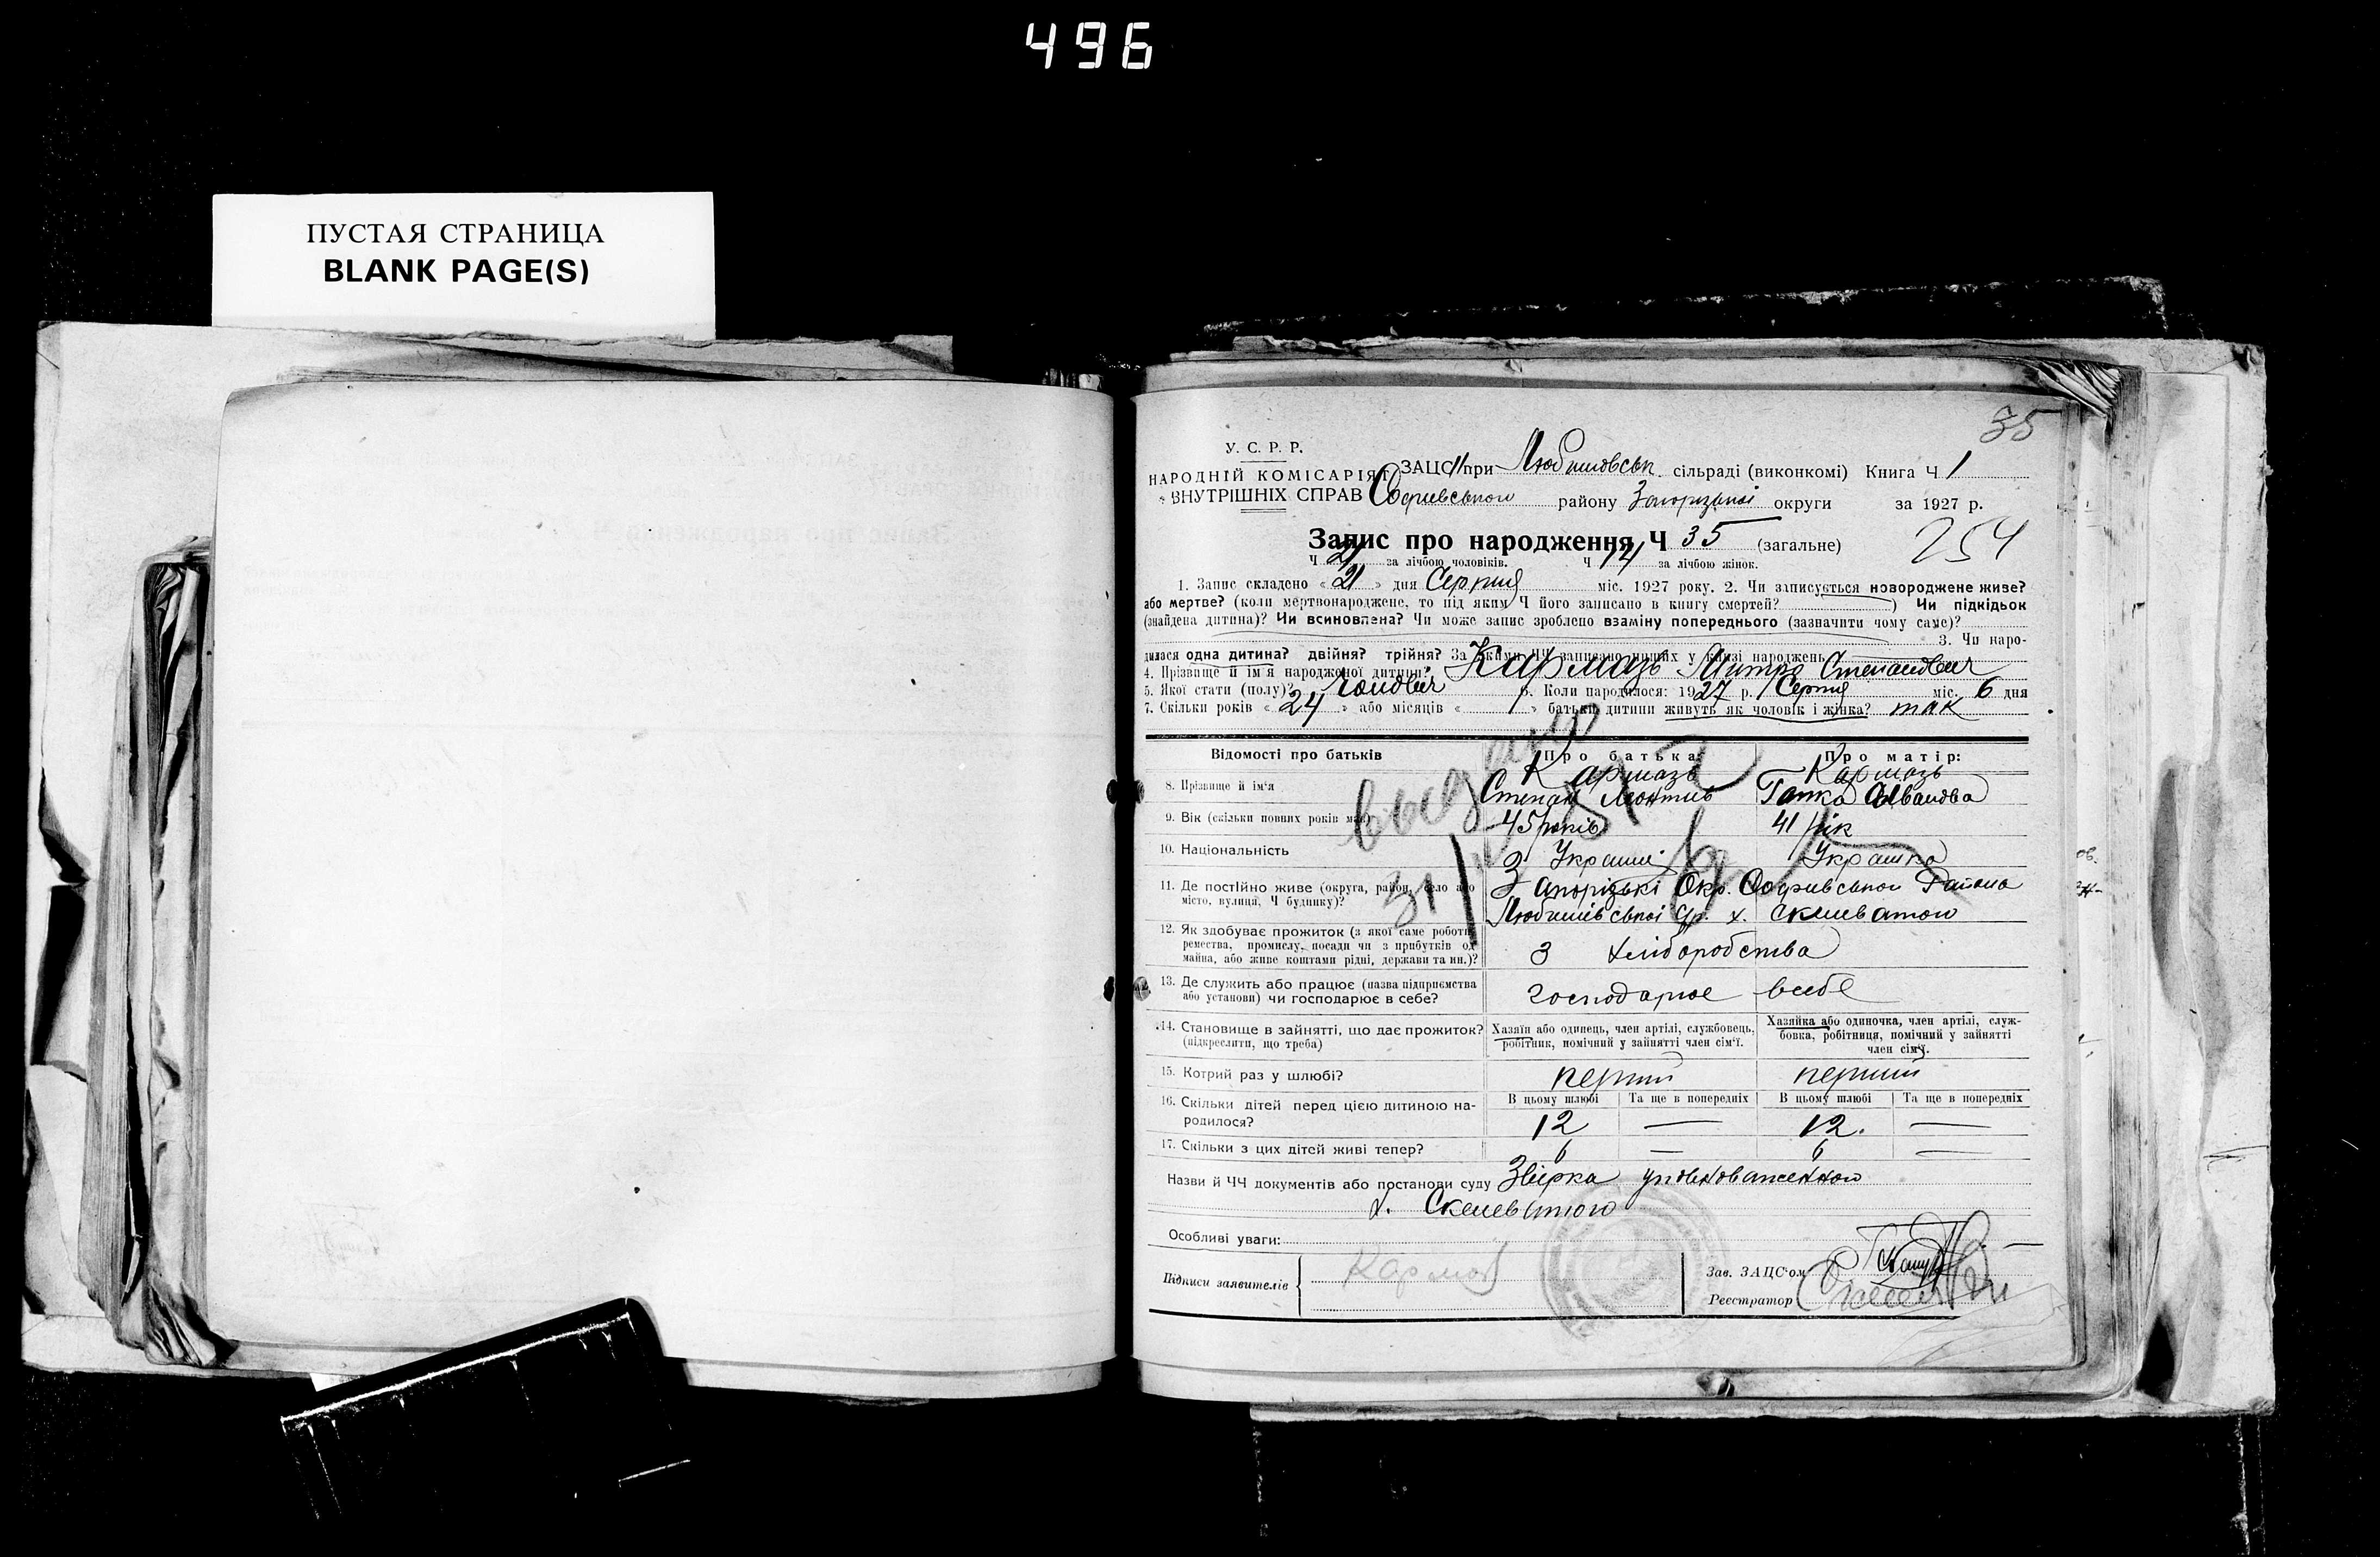 496
ПУСТАЯ СТРАНИЦА
BLANK PAGE(S)
35
У. С. Р. Р.
НАРОДНІЙ КОМІСАРІЯТ
ВНУТРІШНІХ СПРАВ
ЗАЦС при Любимовськ сільраді (виконкомі) Книга Ч 1
Софиевського району Запорізької округи за 1927 р.
Запис про народження Ч 35 (загальне) 254
Ч 21 за лічбою чоловіків. Ч 14 за лічбою жінок.
1. Запис складено « 21 » дня Серпня міс. 1927 року. 2. Чи записується новороджене живе?
або мертве? (коли мертвонароджене, то під яким Ч його записано в книгу смертей? ) Чи підкідьок
(знайдена дитина)? Чи всиновлена? Чи може запис зроблено взаміну попереднього (зазначити чому саме)?
3. Чи наро-
дилася одна дитина? двійня? трійня? За якими ЧЧ записано инших у книзі народжень
4. Прізвище й ім'я народженої дитини? Кармазь Митро Степанович
5. Якої стати (полу)? чоловіч 6. Коли народилося: 1927 р. Серпня міс. 6 дня
7. Скільки років « 24 » або місяців « » батьки дитини живуть як чоловік і жінка? так
Відомості про батьків Про батька: Про матір:
8. Прізвище й ім'я Кармазь Степан Леонтив Кармазь Гапка Ивановa
9. Вік (скільки повних років має) 45 років 41 рік
10. Національність Українка
11. Де постійно живе (округа, район, село або
місто, вулиця, Ч будинку)?
Запорізькі Окр. Софиевського Района
Любимівської с/р. х. Скелеватого
12. Як здобуває прожиток (з якої саме роботи,
ремества, промислу, посади чи з прибутків од
майна, або живе коштами рідні, держави та ин.)?
З хліборобства
13. Де служить або працює (назва підприємства
або установи) чи господарює в себе?
господарює всебе
14. Становище в зайнятті, що дає прожиток?
(підкреслити, що треба)
Хазяїн або одинець, член артілі, службовець,
робітник, помічний у зайнятті член сім'ї.
Хазяйка або одиночка, член артілі, служ-
бовка, робітниця, помічний у зайнятті
член сім'ї.
15. Котрий раз у шлюбі? перший перший
16. Скільки дітей перед цією дитиною на-
родилося?
В цьому шлюбі Та ще в попередніх В цьому шлюбі Та ще в попередніх
12 — 12. —
17. Скільки з цих дітей живі тепер? 6 — 6 —
Назви й ЧЧ документів або постанови суду Звірка уповноваженного
х. Скелеватого
Особливі уваги:
Підписи заявителів
Зав. ЗАЦС'ом
Реєстратор